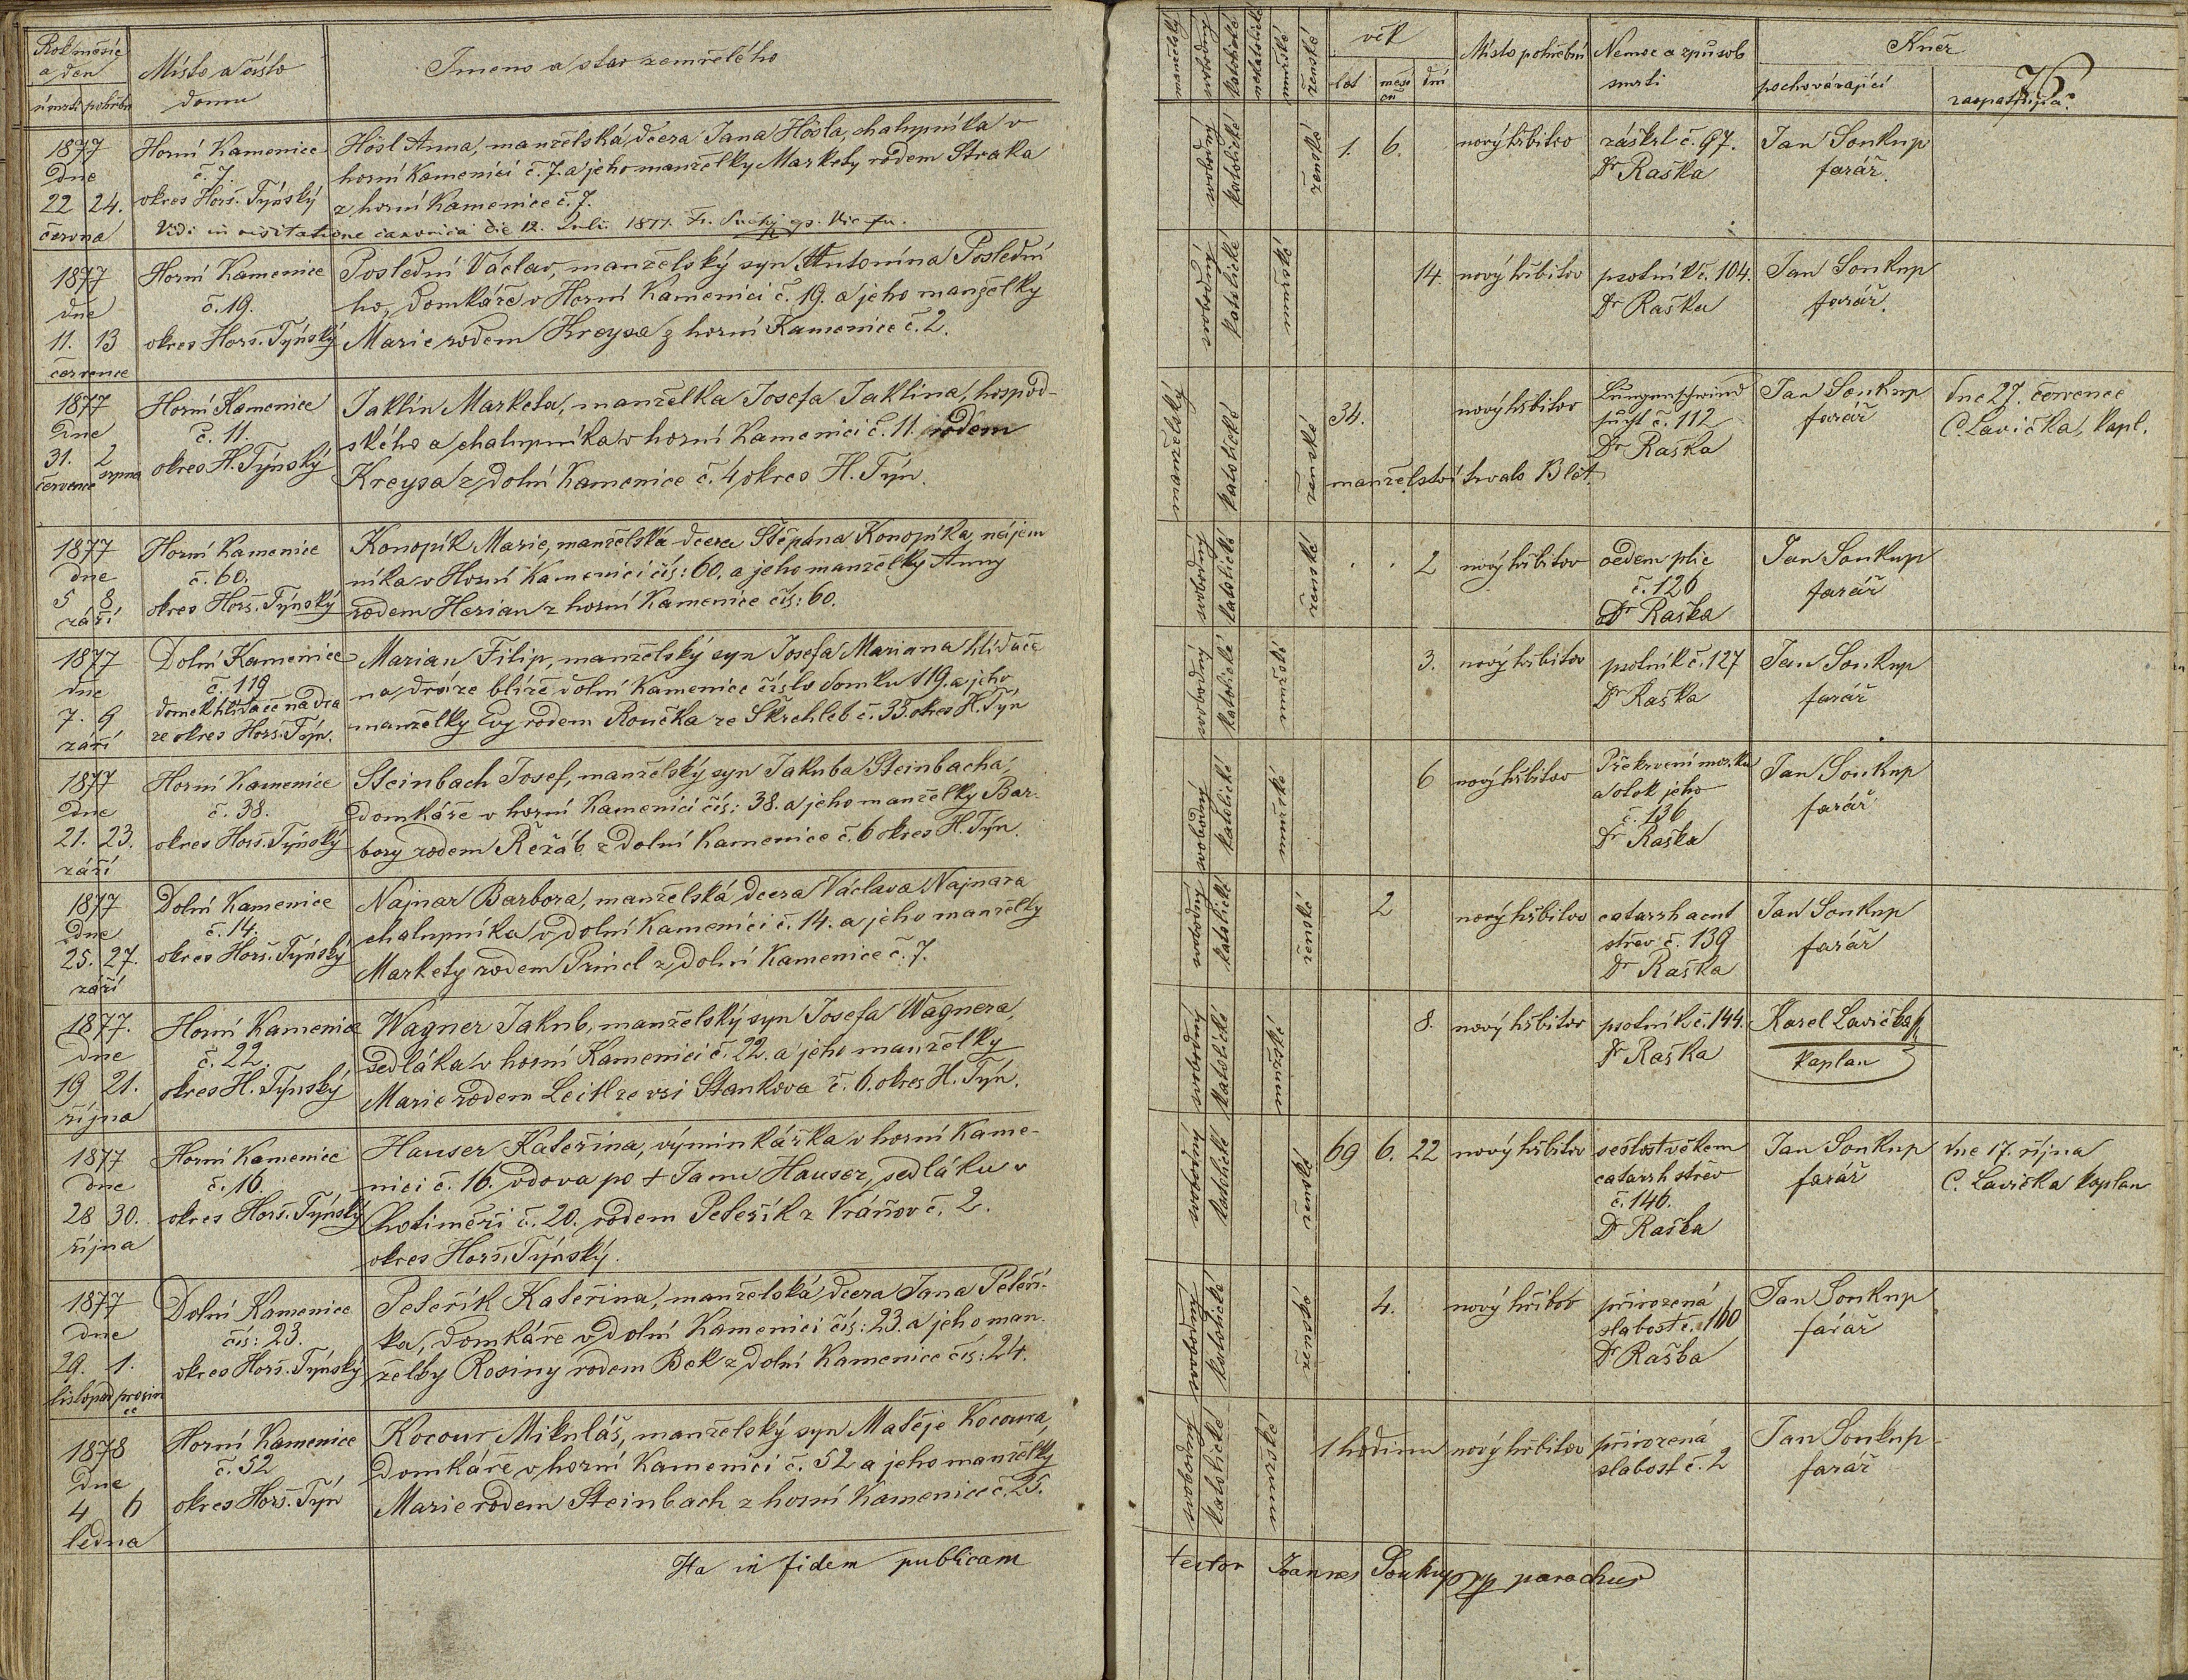 Rok měsíc
a den
úmrtí pohřbu
Místo a číslo
domu
Jmeno a stav zemřelého
1877
dne
22 24.
června
Horní Kamenice
č. 7.
okres Horš. Týnský
Hösl Anna, manželská dcera Jana Hösla, chalupníka v
horní Kamenici č. 7. a jeho manželky Markety rodem Straka
z horní Kamenice č. 7.
Vidi in visitatione canonica die 12. Julii 1877. Fr. Suchý
1877
dne
11. 13
července
Horní Kamenice
č. 19.
okres Horš. Týnský
Poslední Václav, manželský syn Antonína Poslední
ho, domkáře v Horní Kamenici č. 19. a jeho manželky
Marie rodem Kreysa z horní Kamenice č. 2.
1877
Dne
31. 2
července srpna
Horní Kamenice
č. 11.
okres H. Týnský
Jaklín Marketa, manželka Josefa Jaklína, hospod-
ského a chalupníka v horní Kamenici č. 11. rodem
Kreysa z dolní Kamenice č. 4 okres H. Týn.
1877
dne
5 8
září
Horní Kamenice
č. 60.
okres Horš. Týnský
Konopík Marie, manželská dcera Štěpána Konopíka, nájem
níka v Horní Kamenici čís: 60. a jeho manželky Anny
rodem Herian z horní Kamenice čís: 60.
1877
dne
7. 9
září
Dolní Kamenice
č. 119
domek hlídače na drá
ze okres Horš. Týn.
Marian Filip, manželský syn Josefa Mariana hlídače
na dráze blíže dolní Kamenice číslo domku 119. a jeho
manželky Evy rodem Roučka ze Škrchleb č. 33. okres H. Týn
1877
Dne
21. 23.
září
Horní Kamenice
č. 38.
okres Horš. Týnský
Steinbach Josef, manželský syn Jakuba Steinbacha,
domkáře v horní Kamenici čís: 38. a jeho manželky Bar-
bory rodem Řeřáb z Dolní Kamenice č. 6 okres H. Týn.
1877
Dne
25. 27.
září
Dolní Kamenice
č. 14.
okres Horš. Týnský
Najnar Barbora, manželská dcera Václava Najnara
chalupníka v dolní Kamenici č. 14. a jeho manželky
Markety rodem Princl z dolní Kamenice č. 7.
1877.
Dne
19 21.
října
Horní Kamenice
č. 22.
okres H. Týnský
Wagner Jakub, manželský syn Josefa Wagnera,
sedláka v horní Kamenici č. 22. a jeho manželky
Marie rodem Leitl ze vsi Stankova č. 6. okres H. Týn.
1877
dne
28 30.
října
Horní Kamenice
č. 16.
okres Horš. Týnský
Hauser Kateřina, výminkářka v horní Kame-
nici č. 16. vdova po + Janu Hauser, sedláku v
Hotiměři č. 20. rodem Peteřík z Vráňov č. 2.
okres Horš. Týnský.
1877
dne
29. 1.
listopad prosin
ce
Dolní Kamenice
čís: 23.
okres Horš. Týnský
Peteřík Kateřina, manželská dcera Jana Peteří-
ka, domkáře v dolní Kamenici čís: 23. a jeho man-
želky Rosiny rodem Bek z dolní Kamenice čís: 24.
1878
Dne
4 6
ledna
Horní Kamenice
č. 52
okres Horš. Týn
Kocour Mikuláš, manželský syn Matěje Kocoura,
domkáře v horní Kamenici č. 52 a jeho manželky
Marie rodem Steinbach z horní Kamenice č. 25.
Ita in fidem publicam
manželský
svobodný
katolické
nekatolické
mužské
ženské
věk
let
měsí
ců
dní
Místo pohřební
Nemoc a způsob
smrti
Kněz
pochovávající
zaopatřující
76
svobodný katolické ženské
1. 6.
nový hřbitov
záškrt č. 97.
Dr Raška
Jan Soukup
farář.
svobodný katolické mužské
14.
nový hřbitov
psotník č. 104.
Dr Raška
Jan Soukup
farář.
manželský katolické ženské
34.
nový hřbitov
Lungenschwind
sucht č. 112
Dr Raška
manželství trvalo 13 let.
Jan Soukup
farář
dne 27. července
C. Lavička, kapl.
svobodný katolické ženské
2
nový hřbitov
oedem plic
č. 126
Dr Raška
Jan Soukup
farář
svobodný katolické mužské
3.
nový hřbitov
psotník č. 127
Dr Raška
Jan Soukup
farář
svobodný katolické mužské
6
nový hřbitov
Překrvení mozku
a otok jeho
č. 136
Dr Raška
Jan Soukup
farář
svobodný katolické ženské
2
nový hřbitov
catarrh acut
střev č. 139
Dr Raška
Jan Soukup
farář
svobodný katolické mužské
8.
nový hřbitov
psotník č. 144.
Dr Raška
Karel Lavička
kaplan
svobodný katolické ženské
69 6. 22
nový hřbitov
sešlost věkem
catarrh střev
č. 146.
Dr Raška
Jan Soukup
farář
dne 17. října
C. Lavička kaplan
svobodný katolické ženské
4.
nový hřbitov
přirozená
slabost č. 160
Dr Raška
Jan Soukup
farář
svobodný katolické mužské
1 hodinu
nový hřbitov
přirozená
slabost č. 2
Jan Soukup
farář
testor Joannes Soukup parochus